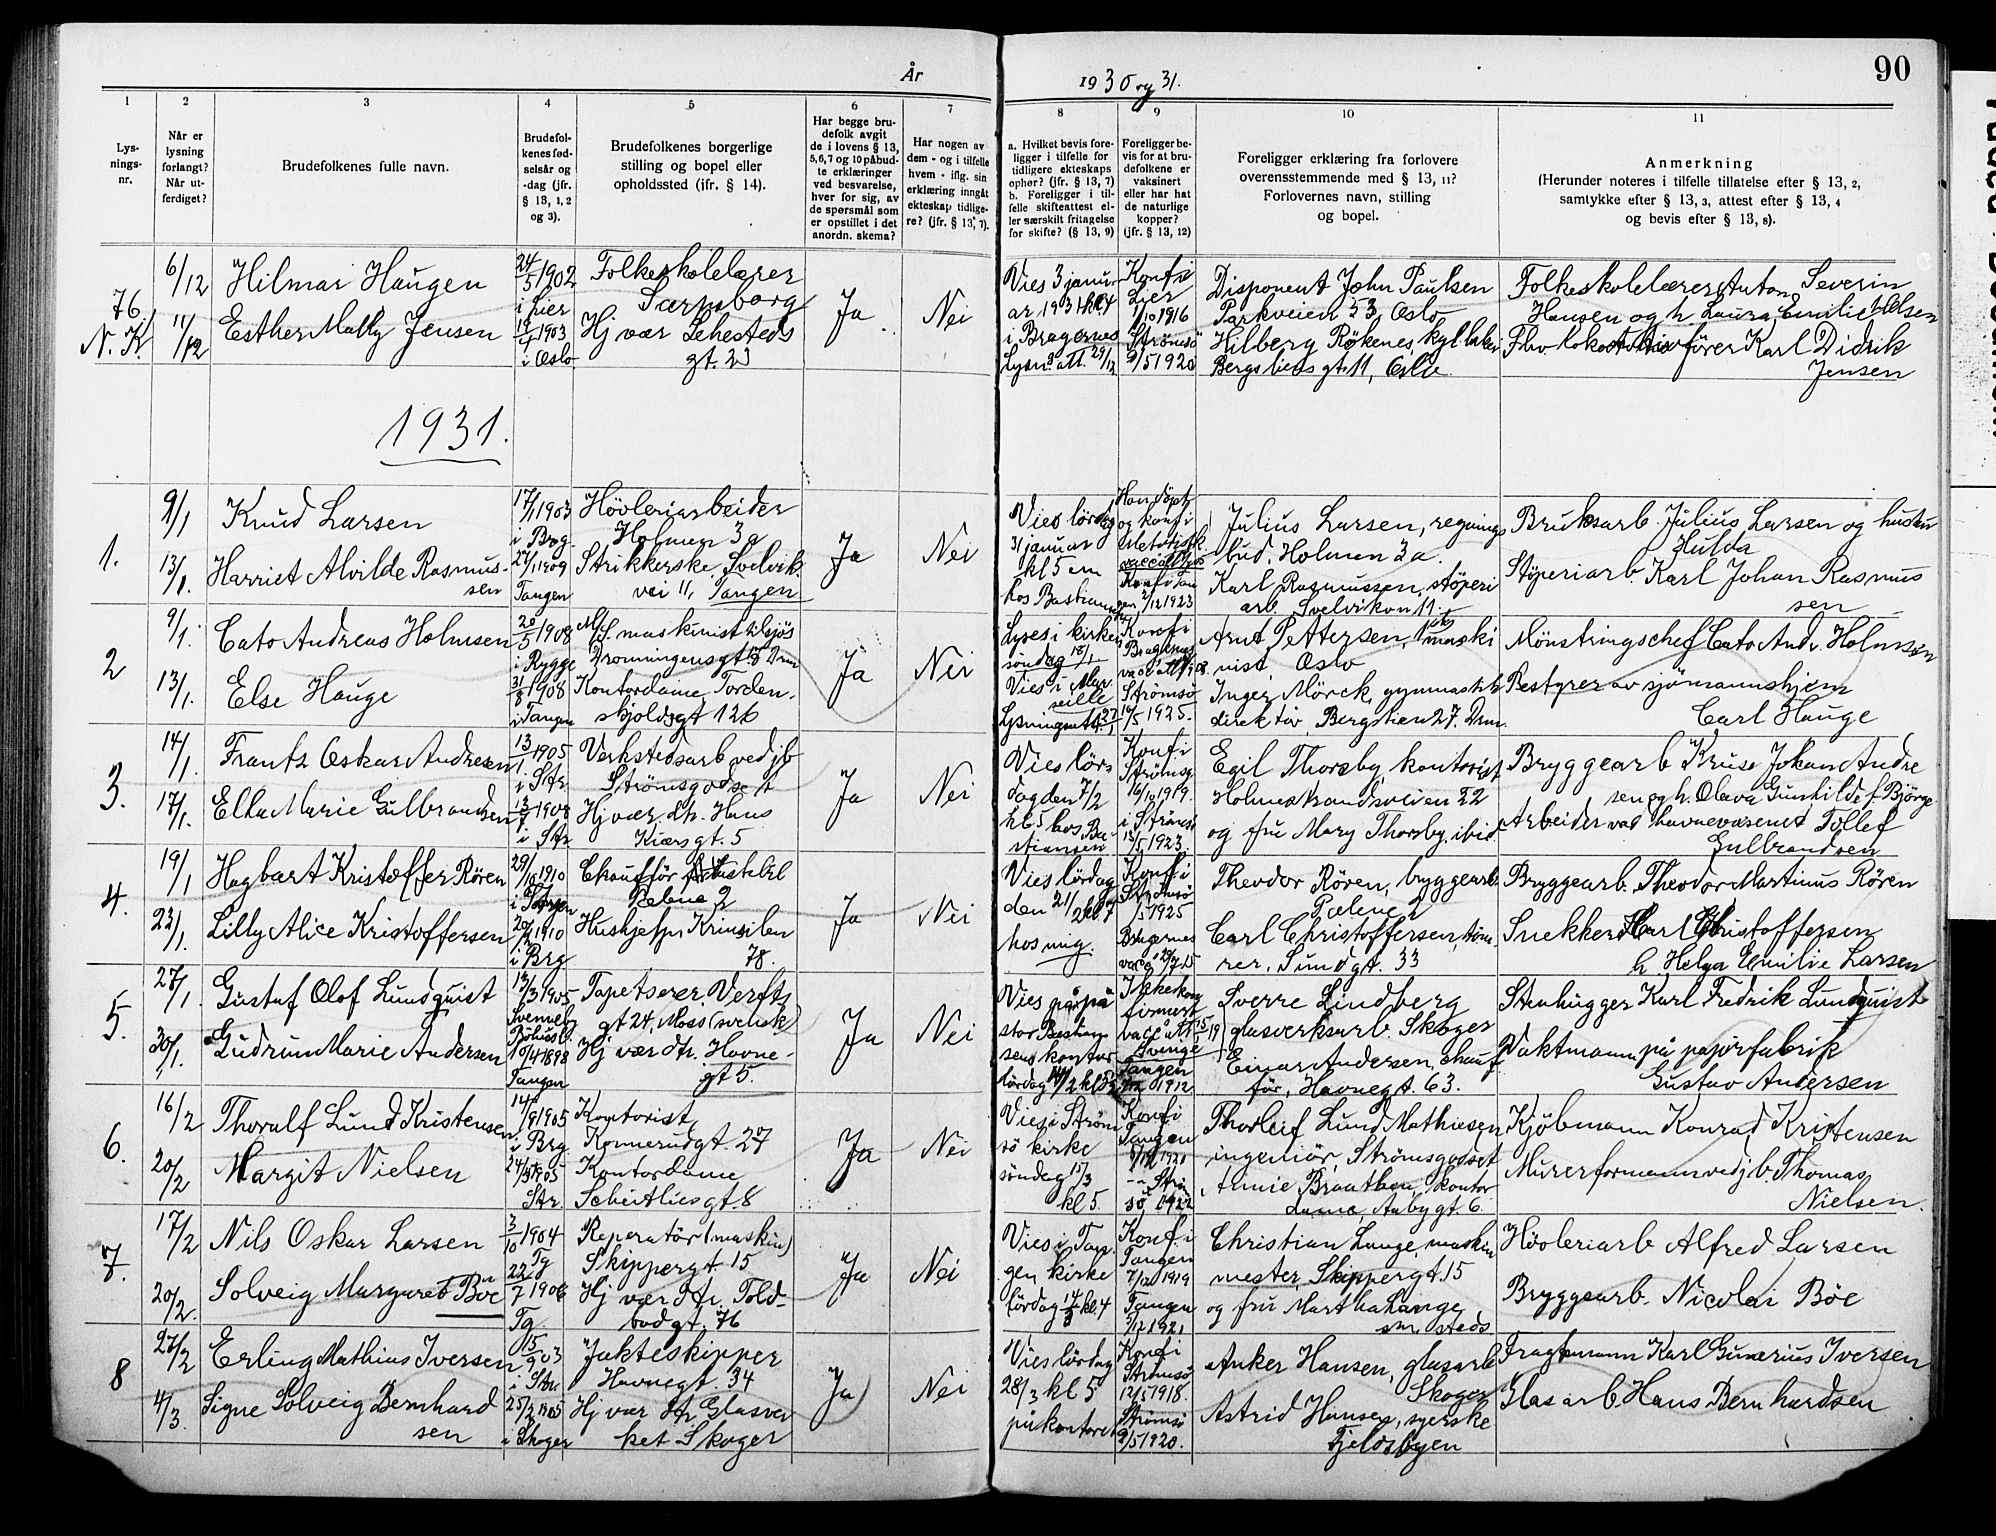 År
1930 og 31.
90
1
Lys-
nings-
nr.
2
Når er
lysning
forlangt?
Når ut-
ferdiget?
3
Brudefolkenes fulle navn.
4
Brudefol-
kenes fød-
selsår og
-dag (jfr.
§ 13, 1, 2
og 3).
5
Brudefolkenes borgerlige
stilling og bopel eller
opholdssted (jfr. § 14).
6
Har begge bru-
defolk avgit
de i lovens § 13,
5, 6, 7 og 10 påbud-
te erklæringer
ved besvarelse,
hver for sig, av
de spørsmål som
er opstillet i det
anordn. skema?
7
Har nogen av
dem - og i tilfelle
hvem - iflg. sin
erklæring inngåt
ekteskap tidlige-
re? (jfr. § 13, 7).
8
a. Hvilket bevis fore-
ligger i tilfelle for
tidligere ekteskaps
ophør? (jfr. § 13, 7)
b. Foreligger i til-
felle skifteattest el-
ler særskilt fritagelse
for skifte? (§ 13, 9)
9
Foreligger be-
vis for at bru-
defolkene er
vaksinert
eller har hat
de naturlige
kopper?
(jfr. § 13, 12)
10
Foreligger erklæring fra forlovere
overensstemmende med § 13, 11?
Forlovernes navn, stilling
og bopel.
11
Anmerkning
(Herunder noteres i tilfelle tillatelse efter § 13, 2,
samtykke efter § 13, 3, attest efter § 13, 4
og bevis efter § 13, 8).
76.
N.K.
6/12
11/12
Hilmar Haugen
Esther Mally Jensen
24/5 1902
i Lier
19/4 1903
i Oslo
Folkeskolelærer
Sarpsborg
Hj vær Lehesteds
gt. 23
Ja
Nei
Vies 3 janu-
ar 1931 kl 4
i Bragernes
Lysn. att. 29/12
Konf i
Lier
1/10 1916
Strömsö
9/5 1920
Disponent John Paulsen
Parkveien 53, Oslo
Hilberg Rökenes,
Bergsliens gt 11, Oslo
Folkeskolelærer Anton Severin
Haugen og h. Laura Emilie Nilsen
Karl Didrik
Jensen
1931.
1.
9/1
13/1.
Knud Larsen
Harriet Alvilde Rasmus-
sen
17/1 1903
i Brg.
27/1 1909
Tangen
Hövleriarbeider
Holmen 3a
Strikkerske, Svelvik
vei 11, Tangen
Ja
Nei
Vies lördag
31 januar
kl 5 em
hos Bastiansen
Han döpt
og konf i
Metodistk
2/12 1923
Julius Larsen, regnings
bud. Holmen 3a.
Karl Rasmussen, støperi
arb. Svelvikvn 11.
Bruksarb. Julius Larsen og hustru
Hulda
Støperiarb. Karl Johan Rasmus
sen
2
9/1.
13/1.
Cato Andreas Holmsen
Else Hauge
20/5 1908
i Rygge
31/8 1908
i Tangen
M/S. maskinist tilsjös
Dronningensgt 13 Drm
Kontordame, Torden-
skjoldsgt 126
Ja
Nei
Lyses i kirken
söndag 18/1
Vies i Mar
seille
Konf i
Bragernes
Strömsö
10/5 1925.
Arnt Pettersen, 1ste maski
nist, Oslo
Inger Mörck, gymnastik
direktör, Bergstien 27. Drm.
Mönstringschef Cato Andr. Holmsen
Bestyrer av sjömannshjem
Carl Hauge
3.
14/1.
17/1.
Frantz Oskar Andresen
Elka Marie Gulbrandsen
13/1 1905
i Str.
13/7 1908
i Str
Verkstedsarb ved jb
Strömsgodset
Hj vær. dtr. Hans
Kiærsgt. 5
Ja
Nei
Vies lörs
dag den 7/2
kl 5 hos Ba-
stiansen
Konf i
Strömsö
16/10 1919.
i Strömsö
13/5 1923.
Egil Thorsby, kontorist
Holmestrandsveien 22
og fru Mary Thorsby, ibid.
Bryggearb Kruse Johan Andre
sen og h. Olava Gunhilde f. Björge
Arbeider ved havnevæsenet Tollef
Gulbrandsen
4.
19/1
23/1.
Hagbart Kristoffer Rören
Lilly Alice Kristoffersen
29/10 1910
i Str
20/2 1910
i Brg
Chauffør
Pælene 2
Hushjelp, Krinsilen
78.
Ja
Nei
Vies lördag
den 21/2 kl 7
hos mig.
Konf i
Strömsö
1925
Bragernes
Theodor Rören, bryggearb
Pælene 2
Carl Christoffersen, töm-
rer. Sundgt. 33
Bryggearb. Theodor Martinus Rören
Snekker Carl Christoffersen
h Helga Emilie Larsen
5.
27/1.
30/1.
Gustaf Olof Lundquist
Gudrun Marie Andersen
13/3 1905
10/4 1898
Tangen
Tapetserer. Verfts
gt 24, Moss (svensk)
Hj vær dtr. Havne-
gt 5.
Ja
Nei
Vies på pa
stor Bastian
sens kontor
lördag 14/2 kl 5
Ikke kon
firmert
Tangen
1912.
Sverre Lindberg
glasverksarb. Skoger
Einar Andersen, chauf
för, Havnegt. 63.
Stenhugger Karl Fredrik Lundquist
Vaktmann på papirfabrik
Gustav Andersen
6.
16/2
20/2
Thoralf Lund Kristensen
Margit Nielsen
14/9 1905
i Brg
24/5 1905
Str.
Kontorist,
Konnerudgt. 27
Kontordame
Scheitliesgt. 8
Ja
Nei
Vies i Ström
sö kirke
söndag 15/3
kl 5.
Konf i
Tangen
Strö
sö 1922
Thorleif Lund Mathiesen
ingeniör, Strömsgodset
Annie Braathen, kontor
dame, Aabygt. 6.
Kjöbmann Konrad Kristensen
Murerformann ved j.b. Thomas
Nielsen.
7.
17/2
20/2.
Nils Oskar Larsen
Solveig Margaret Böe
3/10 1904
Tg
22/7 1906
Tg.
Reparatör (maskin)
Skippergt. 15
Hj vær dtr, Told-
bodgt. 76
Ja
Nei
Vies i Tan-
gen kirke
lördag 14/3 kl 4
Konf i
Tangen
7/12 1919
Tangen
1921
Christian Lange, maskin
mester, Skippergt. 15
og fru Martha Lange,
sm. steds
Hövleriarb Alfred Larsen
Bryggearb. Nicolai Böe
8
27/2
4/3.
Erling Mathius Iversen
Signe Solveig Bernhard
sen
15/9 03
i Str.
25/2 1905
i Skoger
Jakteskipper
Havnegt. 34
Hj vær dtr Glasver
ket Skoger
Ja
Nei
Vies lördag
28/3 kl 5
på kontoret
Konf i
Strömsö
12/5 1918.
Strömsö
9/5 1920.
Anker Hansen, glasarb
Skoger
Astrid Hansen, syerske
Fjeldbyen
Fragtmann Karl Gunerius Iversen
Glasarb. Hans Bernhardsen